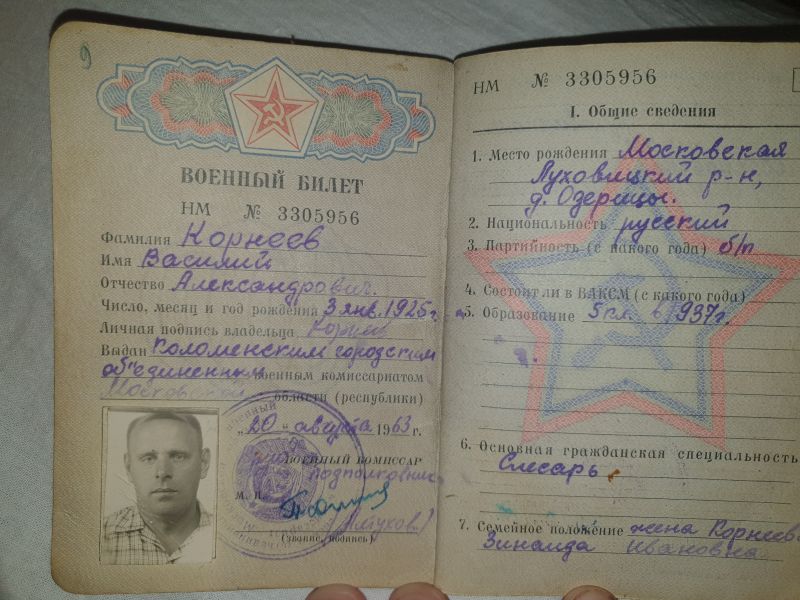 9
ВОЕННЫЙ БИЛЕТ
НМ № 3305956
Фамилия Корнеев
Имя Василий
Отчество Александрович.
Число, месяц и год рождения 3 янв. 1925г.
Личная подпись владельца
Выдан Коломенским городским
объединенным военным комиссариатом
Московской области (республики)
"20" августа 1963г.
ВОЕННЫЙ КОМИССАР
подполковник
М. П.
(звание, подпись)
НМ № 3305956
I. Общие сведения
1. Место рождения Московская
Луховицкий р-н,
д. Озерицы.
2. Национальность русский
3. Партийность (с какого года) б/п
4. Состоит ли в ВЛКСМ (с какого года)
5. Образование 5 кл. в 937г.
6. Основная гражданская специальность
Слесарь
7. Семейное положение жена Корнеева
Зинаида Ивановна